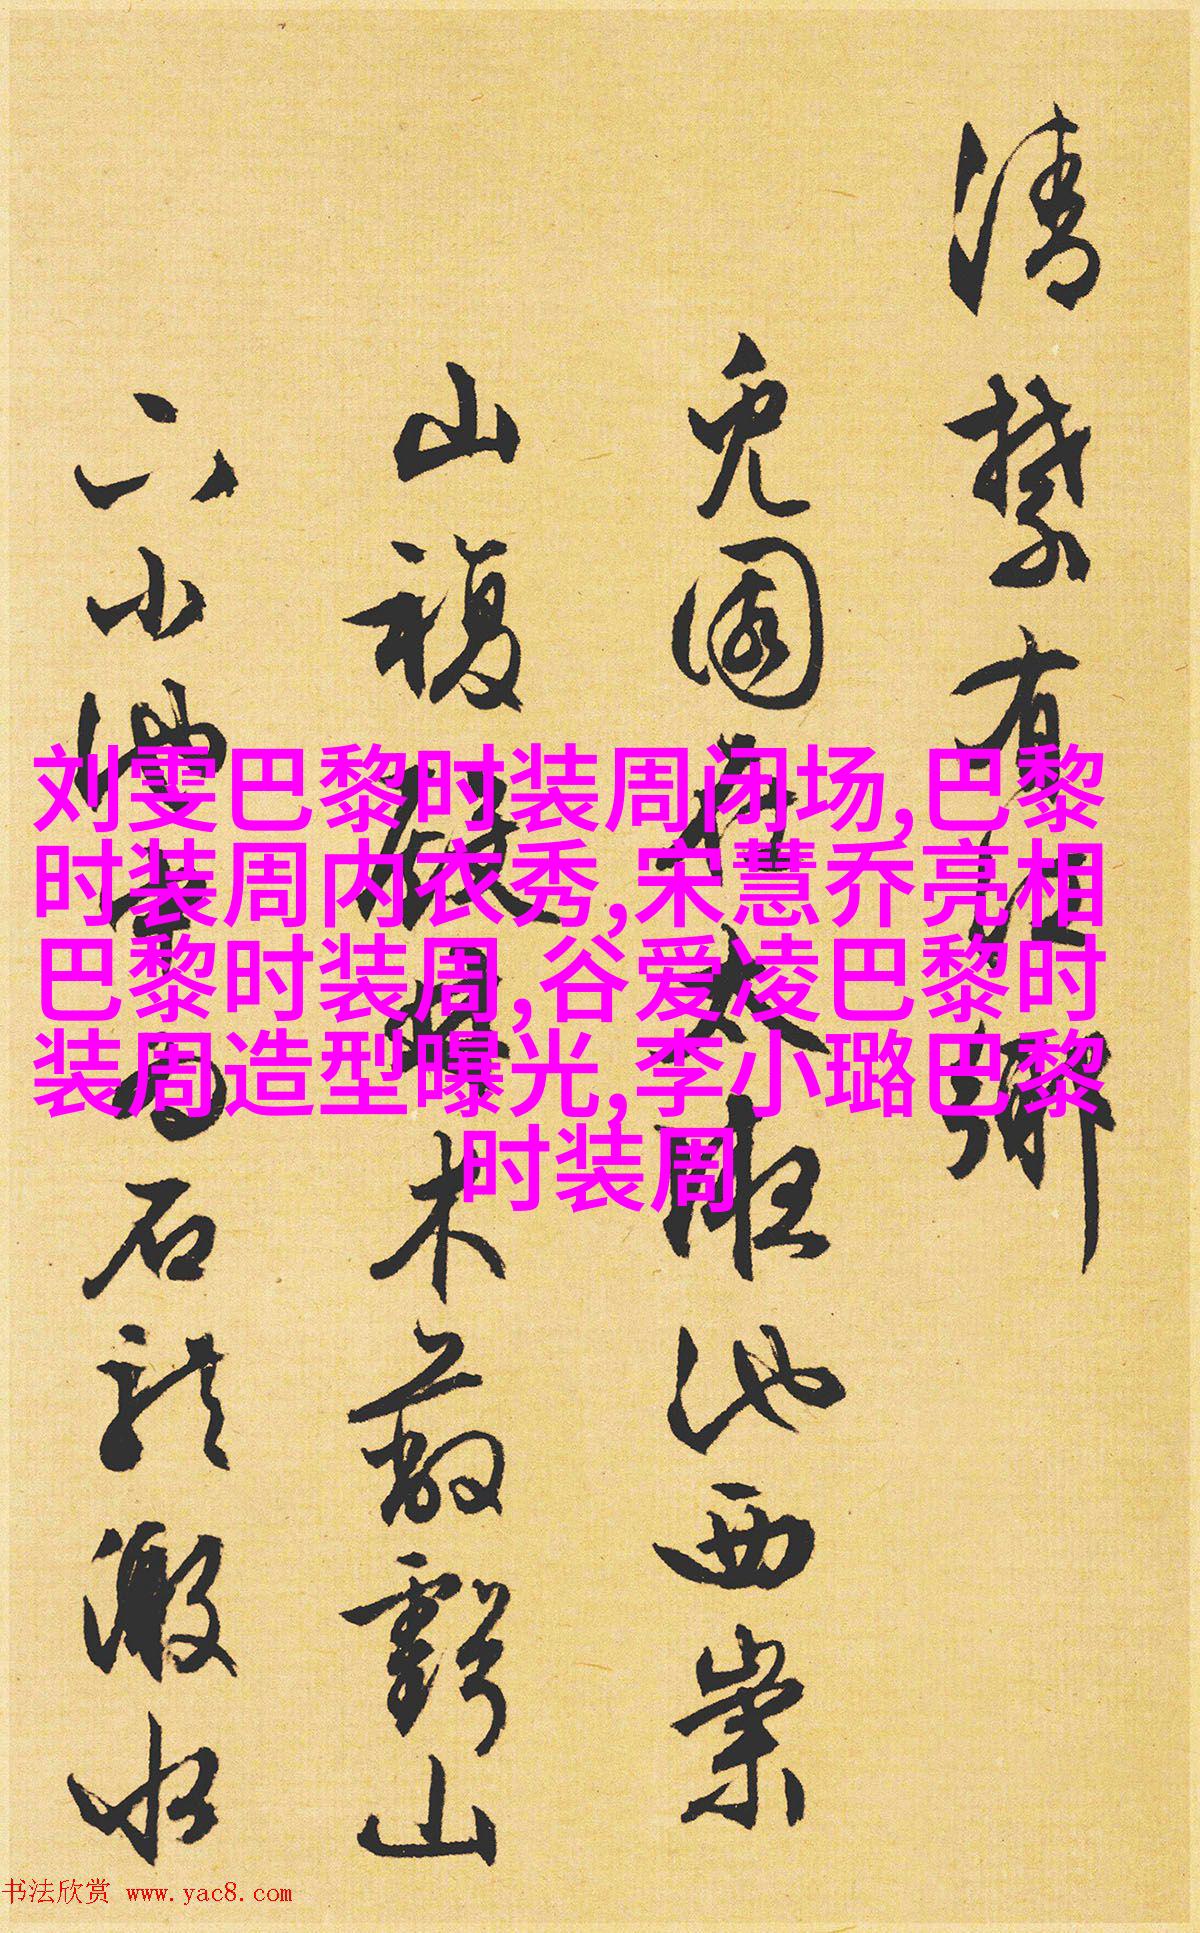 刘雯巴黎时装周闭场,巴黎
时装周内衣秀,宋慧乔亮相
巴黎时装周,谷爱凌巴黎时
装周造型曝光,李小璐巴黎
时装周
清禁有
兔園在太液池西崇
山複殿林木蔽虧山
下小池石龍激水
书法欣赏 www.yac8.com